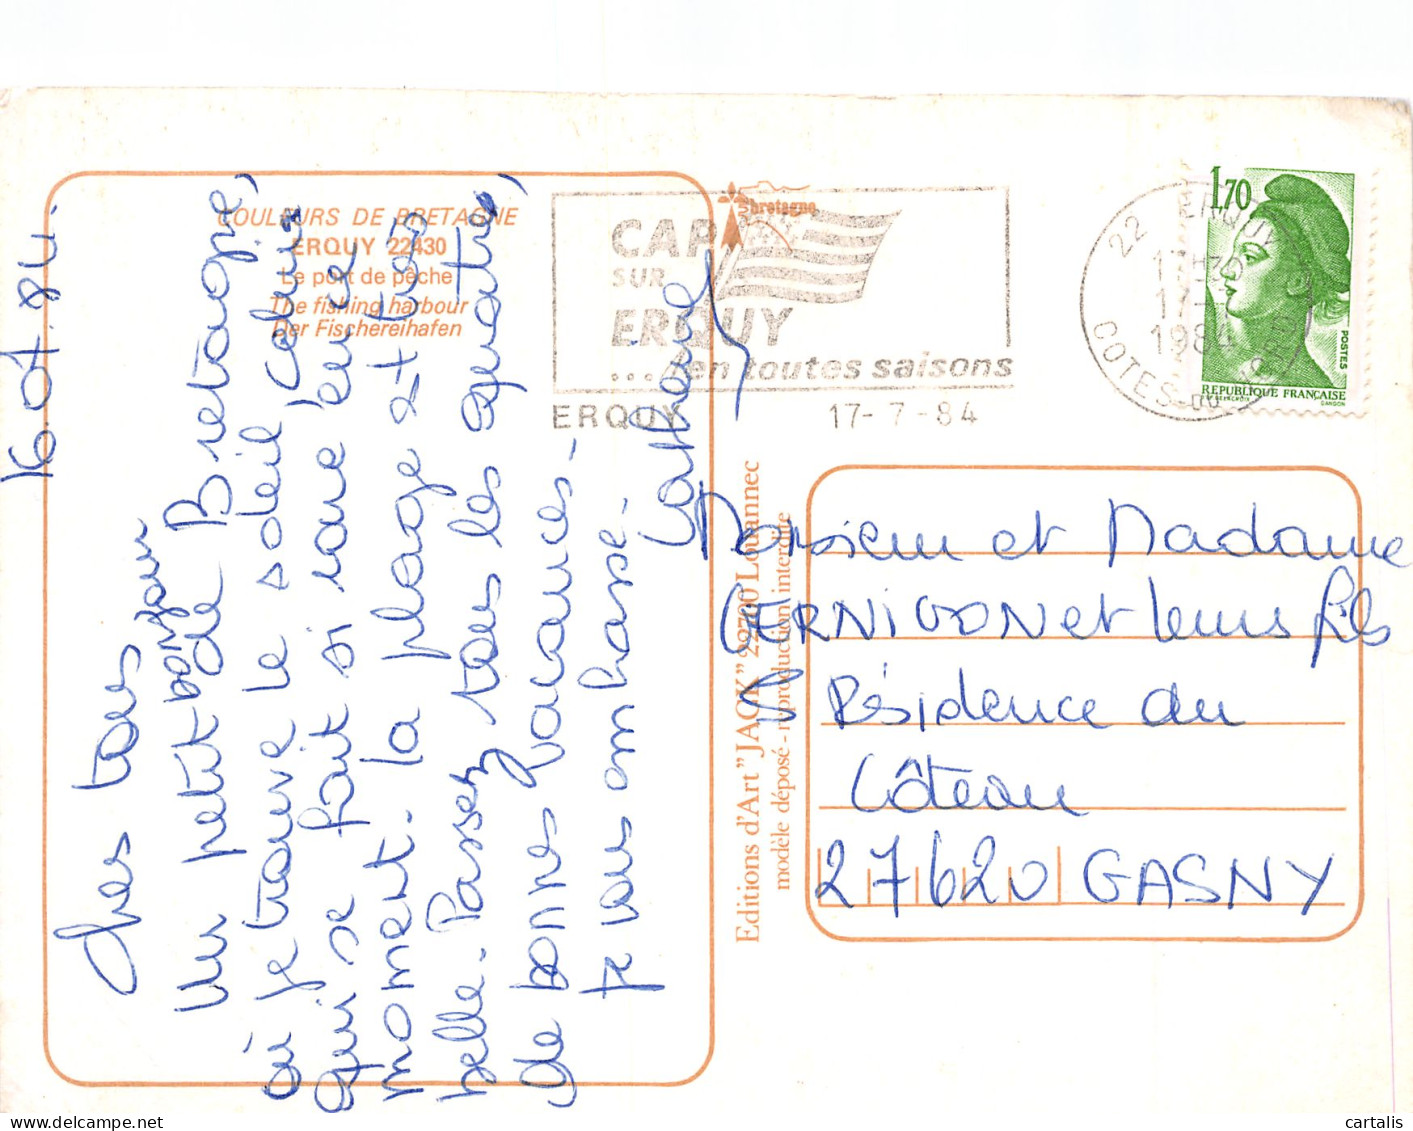 COULEURS DE BRETAGNE
ERQUY 22430
Le port de pêche
The fishing harbour
Der Fischereihafen
16.07.84.
Chers tous
Un petit bonjour
de Bretagne,
où je trouve le soleil Celui
qui se fait si rare en ce
moment. La plage est très
belle. Passez tous les quatre,
de bonnes vacances.
Je vous embrasse.
Catherine
Editions d'Art "JACK" 22700 Louannec
modèle déposé - reproduction interdite
bretagne
CAP
SUR
ERQUY
... en toutes saisons
ERQUY
17-7-84
22 ERQUY
17H30
17-7
1984
COTES-DU-NORD
1,70
POSTES
REPUBLIQUE FRANÇAISE
GANDON
Monsieur et Madame
CERNIGON et leurs fils
Résidence du
Côteau
27620 GASNY
cartalis